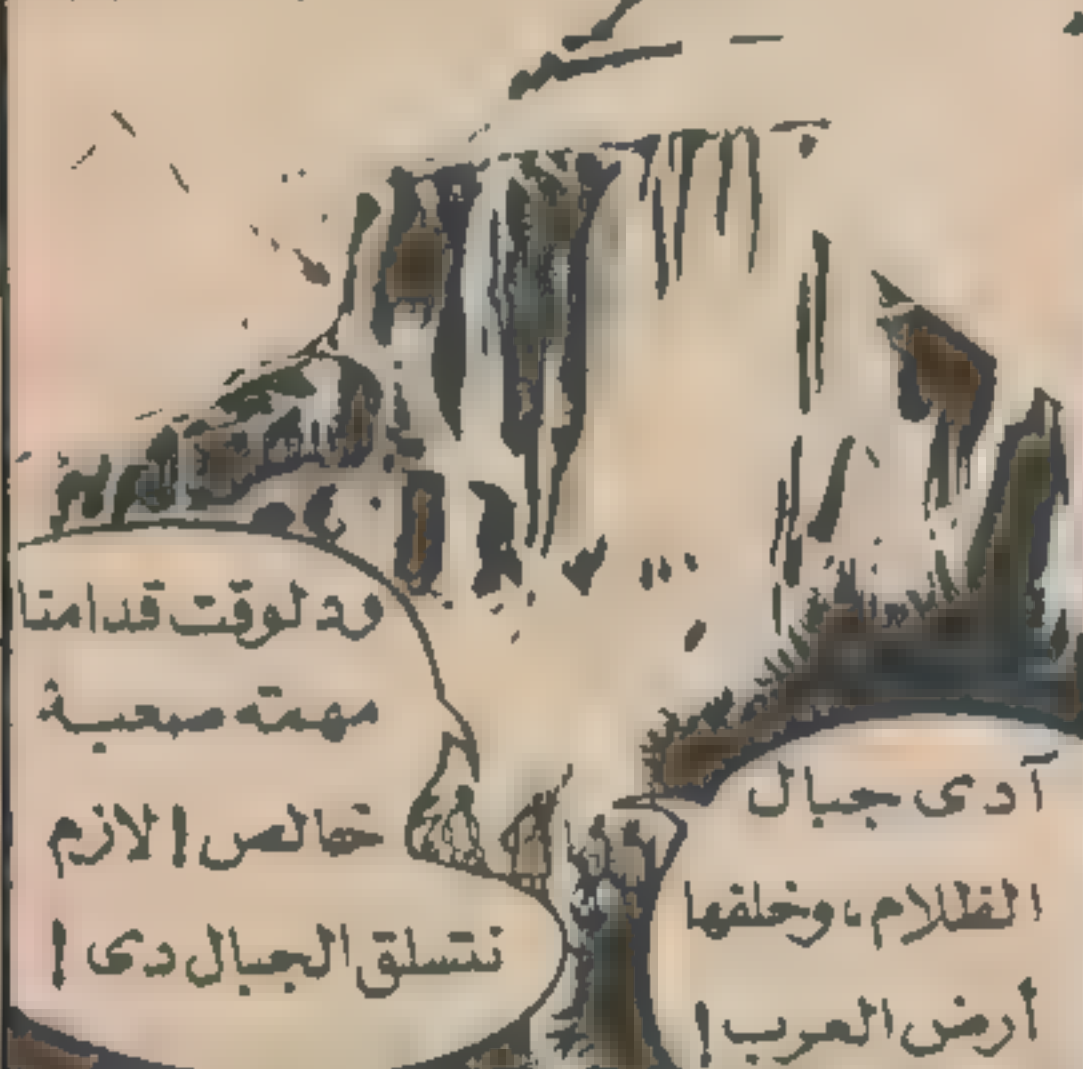 آدى جبال
الظلام، وخلفها
أرض العرب!
ودلوقت قدامنا
مهمته صعبة
خالص! لازم
نتسلق الجبال دى!